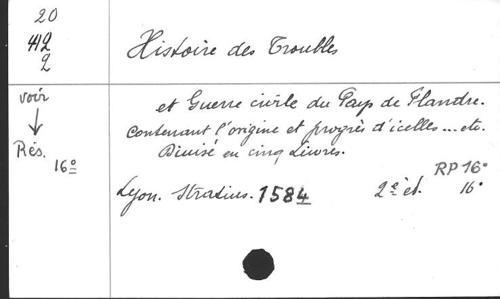 20
412
2
Histoire des Troubles
voir
↓
Rés.
16º
et Guerre civile du Pays de Flandre.
Contenant l'origine et progrès d'icelles ... etc.
Divisé en cinq Livres.
RP 16º
Lyon. Stratius. 1584 2e ét. 16º